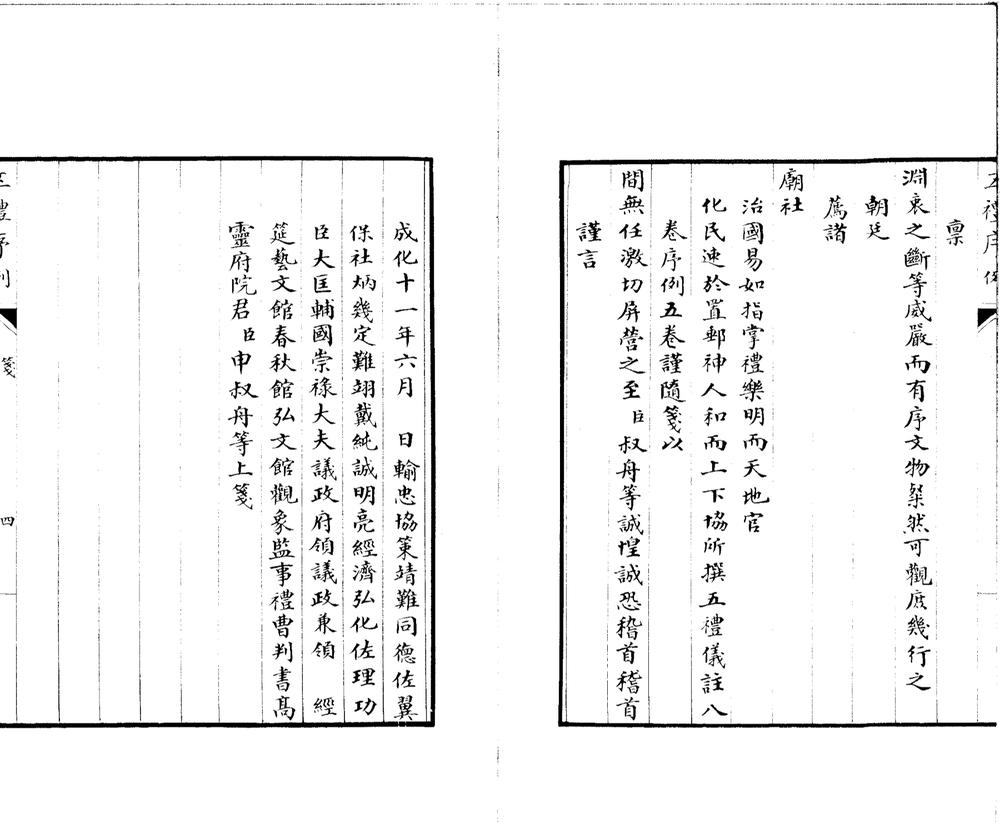 五禮序例
稟
淵衷之斷等威嚴而有序文物粲然可觀庶幾行之
朝廷
薦諸
廟社
治國易如指掌禮樂明而天地官
化民速於置郵神人和而上下協所撰五禮儀註八
卷序例五卷謹隨箋以
聞無任激切屏營之至臣叔舟等誠惶誠恐稽首稽首
謹言
成化十一年六月 日輸忠協策靖難同德佐翼
保社炳幾定難翊戴純誠明亮經濟弘化佐理功
臣大匡輔國崇祿大夫議政府領議政兼領 經
筵藝文館春秋館弘文館觀象監事禮曹判書高
靈府院君臣申叔舟等上箋
五禮序例 箋 四